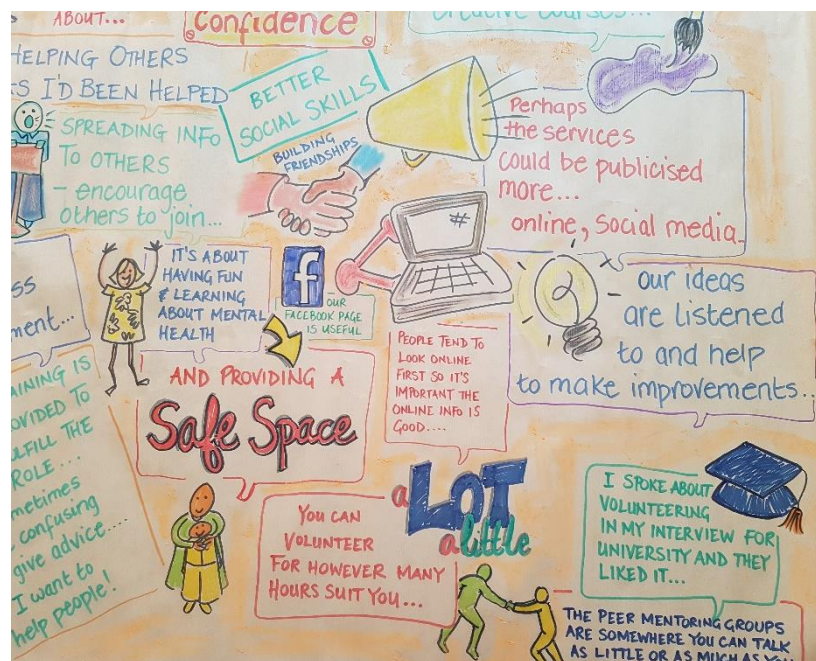 ABOUT...
Confidence
HELPING OTHERS
I'D BEEN HELPED
BETTER
SOCIAL SKILLS
SPREADING INFO
TO OTHERS
- encourage
others to join...
BUILDING
FRIENDSHIPS
Perhaps
the services
could be publicised
more...
online, social media
IT'S ABOUT
HAVING FUN
& LEARNING
ABOUT MENTAL
HEALTH
f
OUR
FACEBOOK PAGE
IS USEFUL
#
our ideas
are listened
to and help
to make improvements...
AND PROVIDING A
Safe Space
PEOPLE TEND TO
LOOK ONLINE
FIRST SO IT'S
IMPORTANT THE
ONLINE INFO IS
GOOD....
IS
TO
THE
ROLE...
confusing
give advice....
I want to
help people!
YOU CAN
VOLUNTEER
FOR HOWEVER MANY
HOURS SUIT YOU...
a LOT
a little
I SPOKE ABOUT
VOLUNTEERING
IN MY INTERVIEW FOR
UNIVERSITY AND THEY
LIKED IT...
THE PEER MENTORING GROUPS
ARE SOMEWHERE YOU CAN TALK
AS LITTLE OR AS MUCH AS